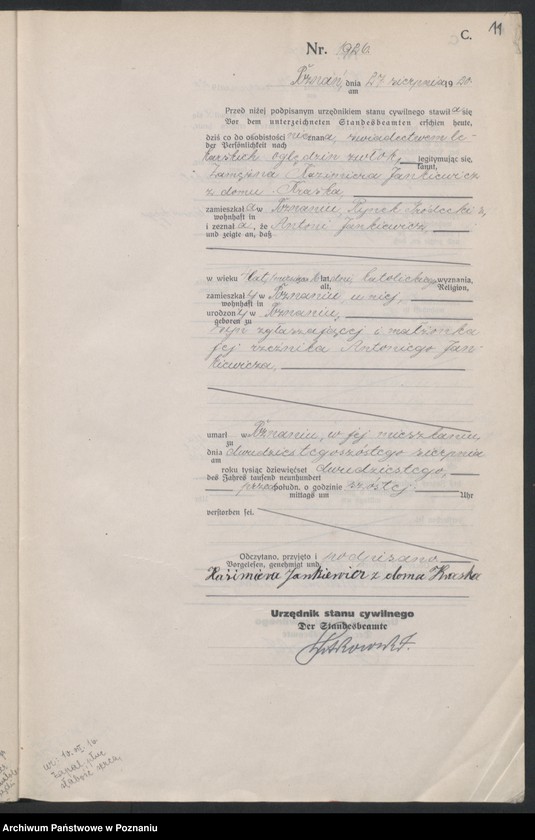 11
C.
Nr. 1926
Poznań, dnia 27 sierpnia 1920
am
Przed niżej podpisanym urzędnikiem stanu cywilnego stawiła się
Vor dem unterzeichneten Standesbeamten erschien heute,
dziś co do osobistości nieznana, świadectwem le-
der Persönlichkeit nach
karskich oględzin zwłok, legitymując się,
kannt,
zamężna Kazimiera Jankiewicz
z domu Kraska,
zamieszkała w Poznaniu, Rynek Śródecki
wohnhaft in
i zeznała, że Antoni Jankiewicz,
und zeigte an, daß
w wieku lat, katolickiego wyznania,
alt, Religion,
zamieszkały w Poznaniu, u niej,
wohnhaft in
urodzony w Poznaniu,
geboren zu
syn zgłaszającej i małżonka
jej rzeźnika Antoniego Jan-
kiewicza,
umarł w Poznaniu, w jej mieszkaniu,
zu
dnia dwudziestegoszóstego sierpnia
am
roku tysiąc dziewięćset dwudziestego,
des Jahres tausend neunhundert
przed połudn. o godzinie szóstej.
mittags um Uhr
verstorben sei.
Odczytano, przyjęto i podpisano
Vorgelesen, genehmigt und
Kaźimiera Jankiewicz z doma Kraska
Urzędnik stanu cywilnego
Der Standesbeamte
Archiwum Państwowe w Poznaniu